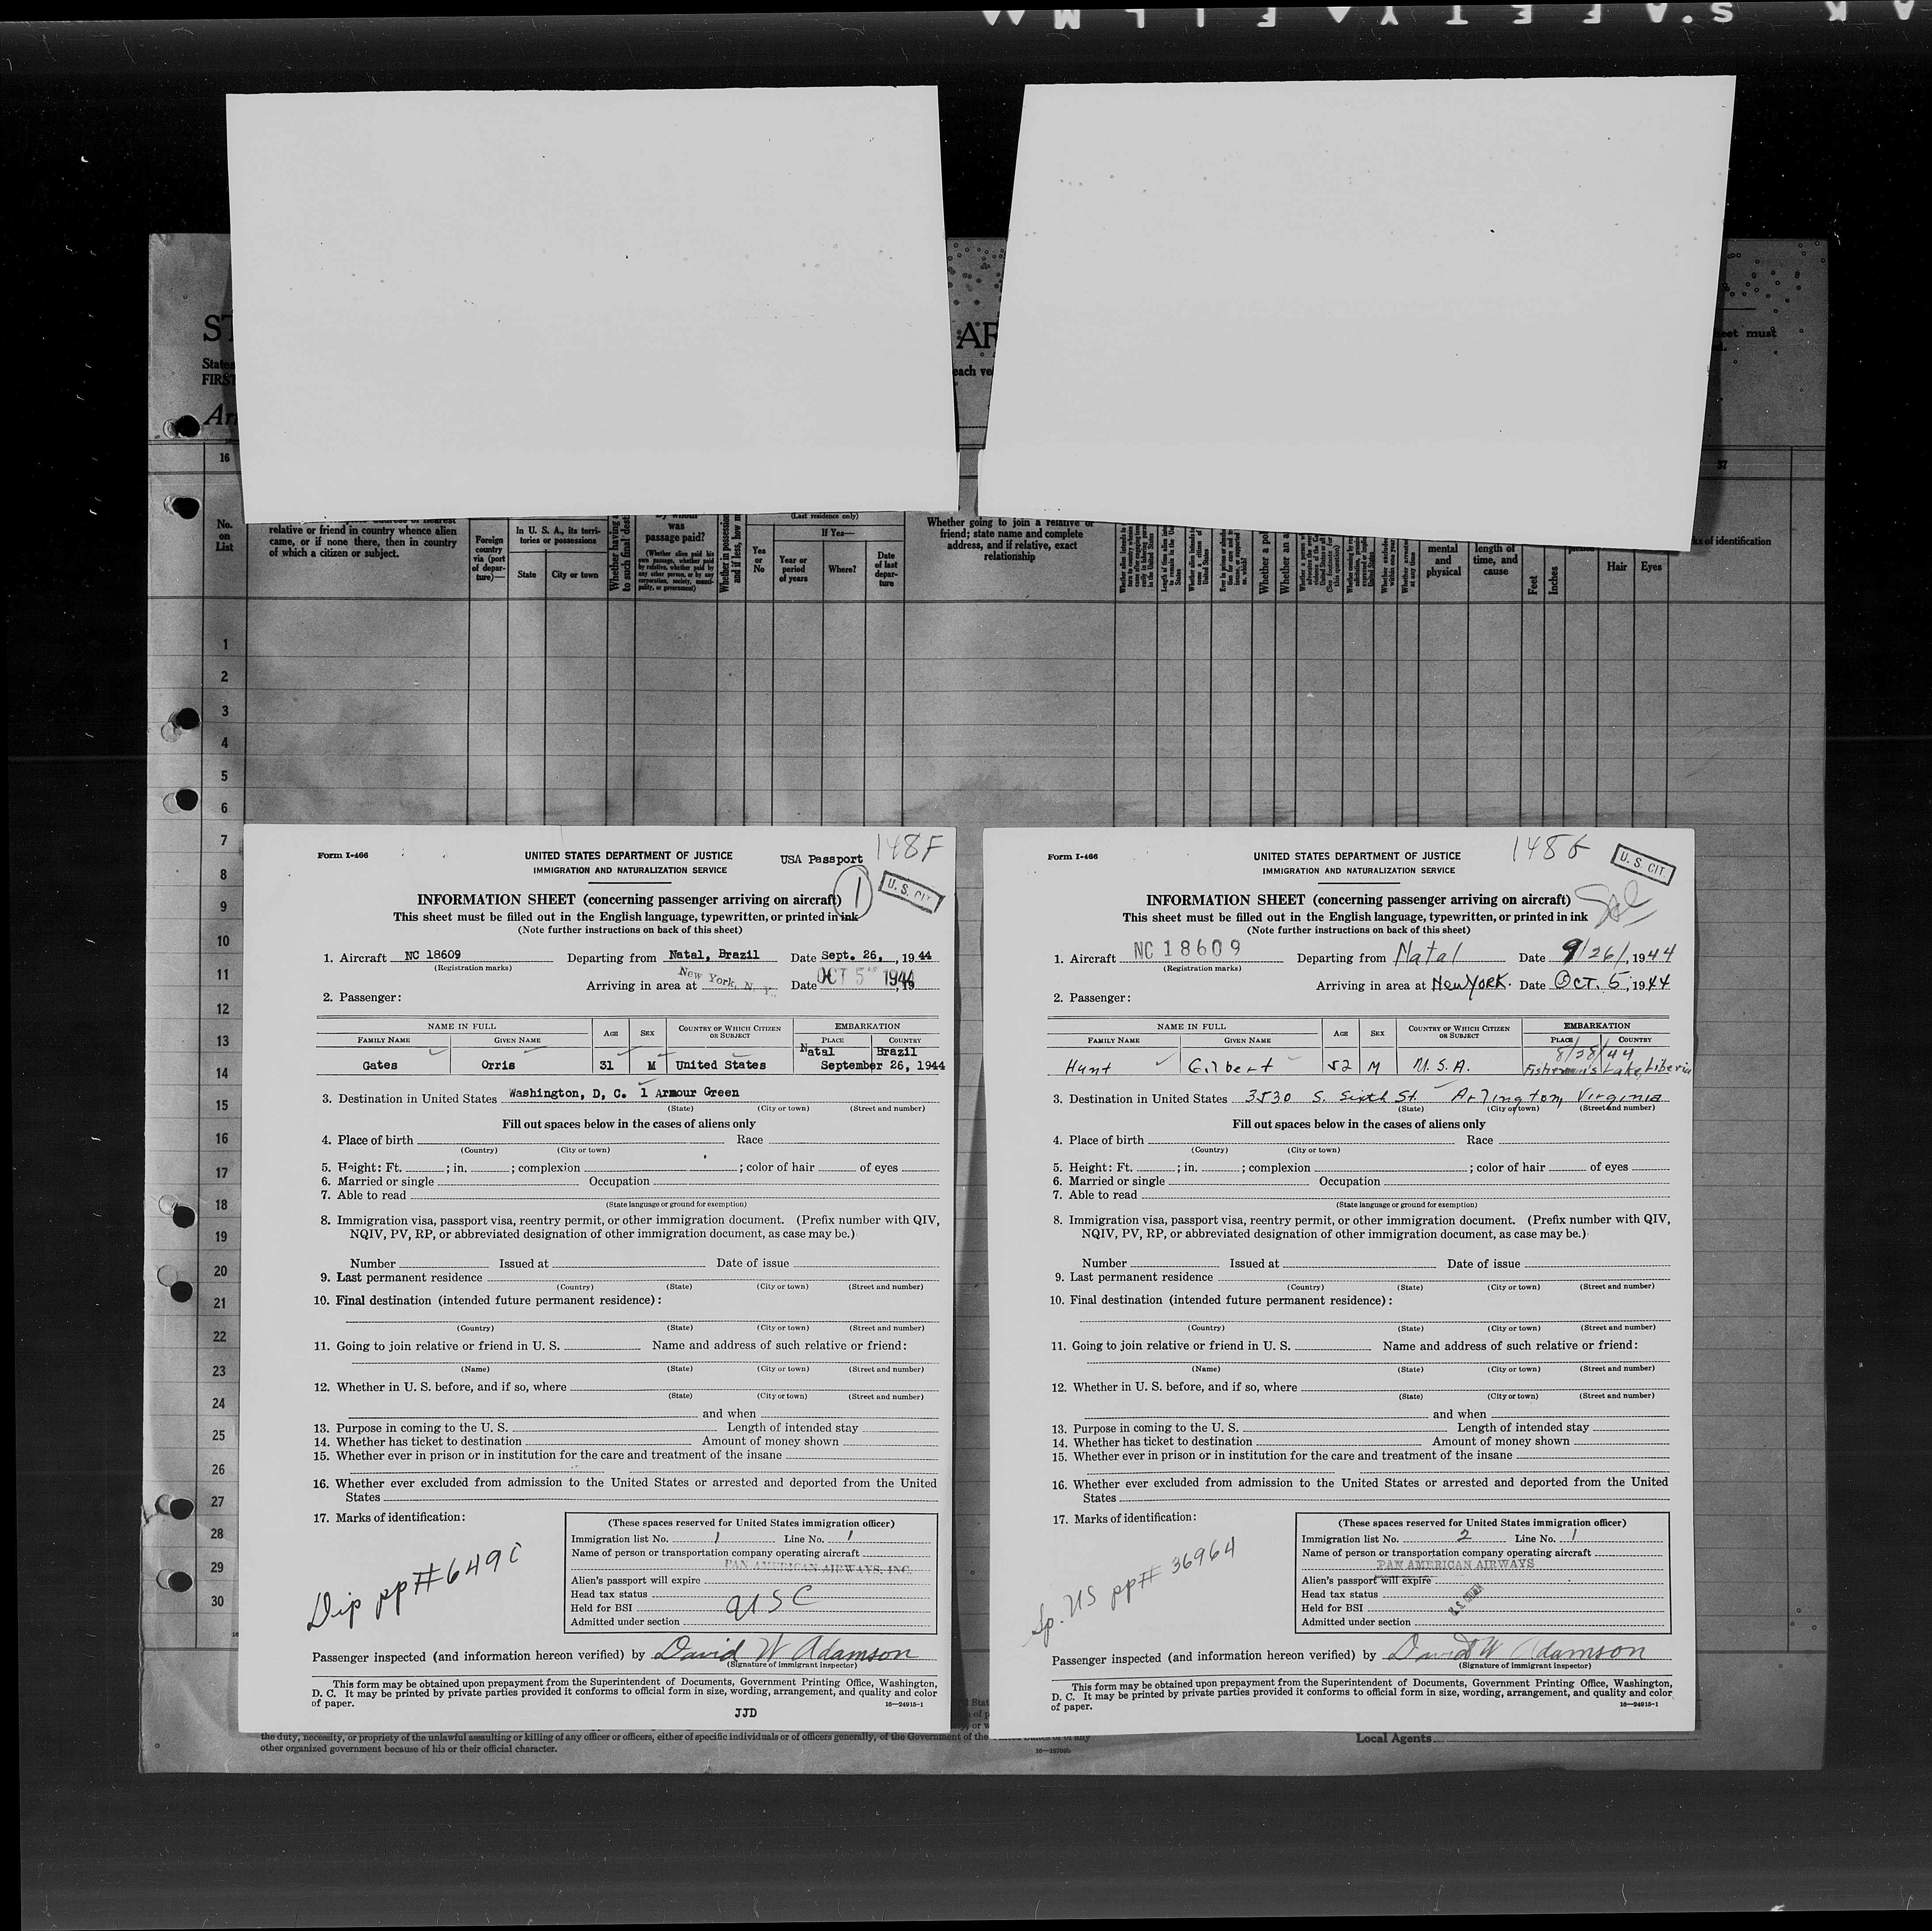 S'AFETY FILM
ST
AR
eet must
States
each ve
FIRST
Arr
16
37
No.
on
List
relative or friend in country whence alien
came, or if none there, then in country
of which a citizen or subject.
Foreign
country
via (port
of depar-
ture)—
In U. S. A., its terri-
tories or possessions
State
City or town
Whether having a
to such final dest
By whom
was
passage paid?
(Whether alien paid his
own passage, whether paid
by relative, whether paid by
any other person, or by any
corporation, society, munici-
pality, or government)
Whether in possession
and if less, how m
(Last residence only)
Yes
or
No
If Yes—
Year or
period
of years
Where?
Date
of last
depar-
ture
Whether going to join a relative or
friend; state name and complete
address, and if relative, exact
relationship
Whether a pol
Whether an a
mental
and
physical
length of
time, and
cause
Feet
Inches
Hair
Eyes
ks of identification
1
2
3
4
5
6
7
8
9
10
11
12
13
14
15
16
17
18
19
20
21
22
23
24
25
26
27
28
29
30
Form I-466
UNITED STATES DEPARTMENT OF JUSTICE
IMMIGRATION AND NATURALIZATION SERVICE
USA Passport
148F
1
U. S. CIT
INFORMATION SHEET (concerning passenger arriving on aircraft)
This sheet must be filled out in the English language, typewritten, or printed in ink
(Note further instructions on back of this sheet)
1. Aircraft NC 18609 Departing from Natal, Brazil Date Sept. 26, , 1944
(Registration marks)
Arriving in area at New York, N. Y. Date OCT 5 1944 , 19
2. Passenger:
NAME IN FULL
AGE
SEX
COUNTRY OF WHICH CITIZEN
OR SUBJECT
EMBARKATION
FAMILY NAME
GIVEN NAME
PLACE
COUNTRY
Natal Brazil
Gates Orris 31 M United States September 26, 1944
3. Destination in United States Washington, D, C. 1 Armour Green
(State) (City or town) (Street and number)
Fill out spaces below in the cases of aliens only
4. Place of birth Race
(Country) (City or town)
5. Height: Ft. ; in. ; complexion ; color of hair of eyes
6. Married or single Occupation
7. Able to read
(State language or ground for exemption)
8. Immigration visa, passport visa, reentry permit, or other immigration document. (Prefix number with QIV,
NQIV, PV, RP, or abbreviated designation of other immigration document, as case may be.)
Number Issued at Date of issue
9. Last permanent residence
(Country) (State) (City or town) (Street and number)
10. Final destination (intended future permanent residence):
(Country) (State) (City or town) (Street and number)
11. Going to join relative or friend in U. S. Name and address of such relative or friend:
(Name) (State) (City or town) (Street and number)
12. Whether in U. S. before, and if so, where
(State) (City or town) (Street and number)
and when
13. Purpose in coming to the U. S. Length of intended stay
14. Whether has ticket to destination Amount of money shown
15. Whether ever in prison or in institution for the care and treatment of the insane
16. Whether ever excluded from admission to the United States or arrested and deported from the United
States
17. Marks of identification:
Dip pp# 649
(These spaces reserved for United States immigration officer)
Immigration list No. 1 Line No. 1
Name of person or transportation company operating aircraft
PAN AMERICAN AIRWAYS, INC.
Alien's passport will expire
Head tax status
Held for BSI USC
Admitted under section
Passenger inspected (and information hereon verified) by David W Adamson
(Signature of immigrant inspector)
This form may be obtained upon prepayment from the Superintendent of Documents, Government Printing Office, Washington,
D. C. It may be printed by private parties provided it conforms to official form in size, wording, arrangement, and quality and color
of paper.
16—24915-1
JJD
Form I-466
UNITED STATES DEPARTMENT OF JUSTICE
IMMIGRATION AND NATURALIZATION SERVICE
148G
U. S. CIT
INFORMATION SHEET (concerning passenger arriving on aircraft)
This sheet must be filled out in the English language, typewritten, or printed in ink
(Note further instructions on back of this sheet)
1. Aircraft NC 18609 Departing from Natal Date 9/26/, 1944
(Registration marks)
Arriving in area at New York. Date Oct. 5, 1944
2. Passenger:
NAME IN FULL
AGE
SEX
COUNTRY OF WHICH CITIZEN
OR SUBJECT
EMBARKATION
FAMILY NAME
GIVEN NAME
PLACE
COUNTRY
8/28/44
Hunt Gilbert 52 M U.S.A. Fisherman's Lake, Liberia
3. Destination in United States 3530 S. Sixth St. Arlington, Virginia
(State) (City or town) (Street and number)
Fill out spaces below in the cases of aliens only
4. Place of birth Race
(Country) (City or town)
5. Height: Ft. ; in. ; complexion ; color of hair of eyes
6. Married or single Occupation
7. Able to read
(State language or ground for exemption)
8. Immigration visa, passport visa, reentry permit, or other immigration document. (Prefix number with QIV,
NQIV, PV, RP, or abbreviated designation of other immigration document, as case may be.)
Number Issued at Date of issue
9. Last permanent residence
(Country) (State) (City or town) (Street and number)
10. Final destination (intended future permanent residence):
(Country) (State) (City or town) (Street and number)
11. Going to join relative or friend in U. S. Name and address of such relative or friend:
(Name) (State) (City or town) (Street and number)
12. Whether in U. S. before, and if so, where
(State) (City or town) (Street and number)
and when
13. Purpose in coming to the U. S. Length of intended stay
14. Whether has ticket to destination Amount of money shown
15. Whether ever in prison or in institution for the care and treatment of the insane
16. Whether ever excluded from admission to the United States or arrested and deported from the United
States
17. Marks of identification:
Sp. US pp# 36964
(These spaces reserved for United States immigration officer)
Immigration list No. 2 Line No. 1
Name of person or transportation company operating aircraft
PAN AMERICAN AIRWAYS
Alien's passport will expire
Head tax status
Held for BSI
Admitted under section
Passenger inspected (and information hereon verified) by David W Adamson
(Signature of immigrant inspector)
This form may be obtained upon prepayment from the Superintendent of Documents, Government Printing Office, Washington,
D. C. It may be printed by private parties provided it conforms to official form in size, wording, arrangement, and quality and color
of paper.
16—24915-1
the duty, necessity, or propriety of the unlawful assaulting or killing of any officer or officers, either of specific individuals or of officers generally, of the Government of the
other organized government because of his or their official character.
16—18709b
Local Agents